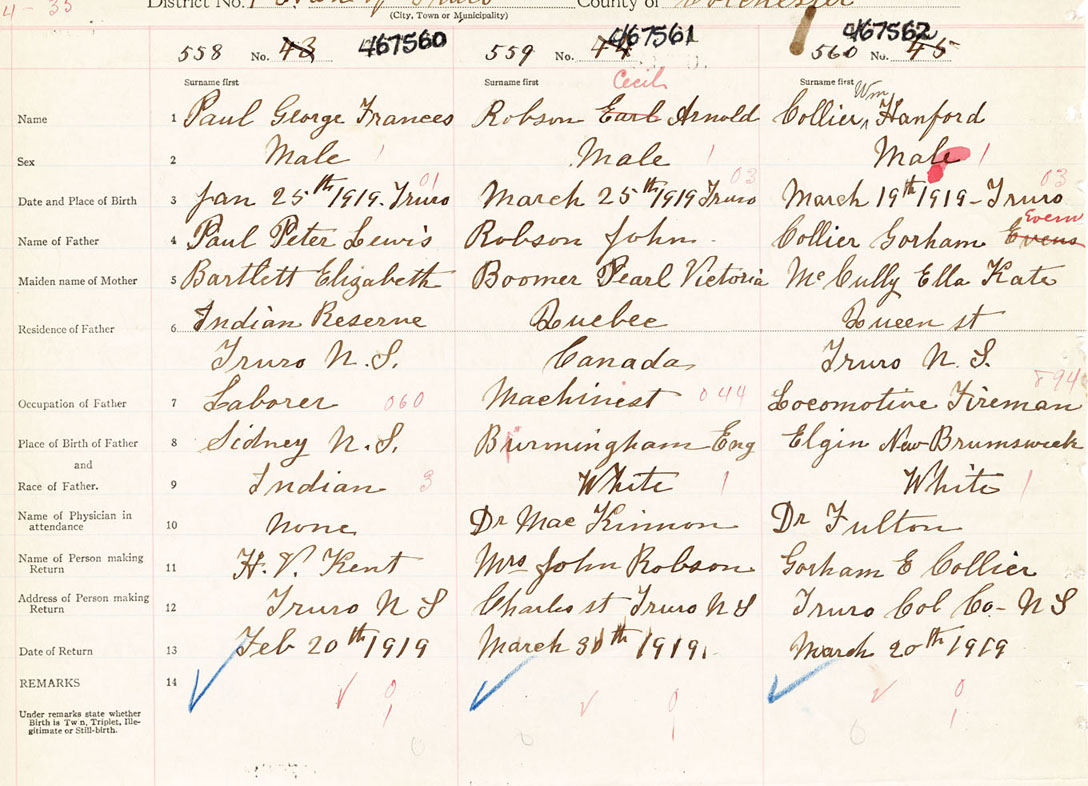 4 - 35 District No. 1 Town of Truro County of Colchester
(City, Town or Municipality)
558 No. 43 467560 559 No. 44 467561 560 No. 45 467562
Surname first Surname first Surname first
Cecil Wm
Name 1 Paul George Frances Robson Earl Arnold Collier, Hanford
Sex 2 Male 1 Male 1 Male 1
01 03 03
Date and Place of Birth 3 Jan 25th 1919. Truro March 25th 1919 Truro March 19th 1919 - Truro
Evem
Name of Father 4 Paul Peter Lewis Robson John. Collier Gorham Evens
Maiden name of Mother 5 Bartlett Elizabeth Boomer Pearl Victoria McCully Ella Kate
Residence of Father 6 Indian Reserve Quebec Queen st
Truro N.S. Canada Truro N.S.
894
Occupation of Father 7 Laborer 060 Machinist 044 Locomotive Fireman
Place of Birth of Father 8 Sidney N.S. Burmingham Eng Elgin New Brumsweek
and
Race of Father. 9 Indian 3 White 1 White 1
Name of Physician in
attendance 10 None Dr MacKinnon Dr Fulton
Name of Person making
Return 11 H.V. Kent Mrs John Robson Gorham E Collier
Address of Person making
Return 12 Truro N S Charles st Truro N S Truro Col Co- N S
Date of Return 13 Feb 20th 1919 March 30th 1919. March 20th 1919
REMARKS 14
0 0 0
1 1 1
Under remarks state whether
Birth is Tw n, Triplet, Ille-
gitimate or Still-birth.